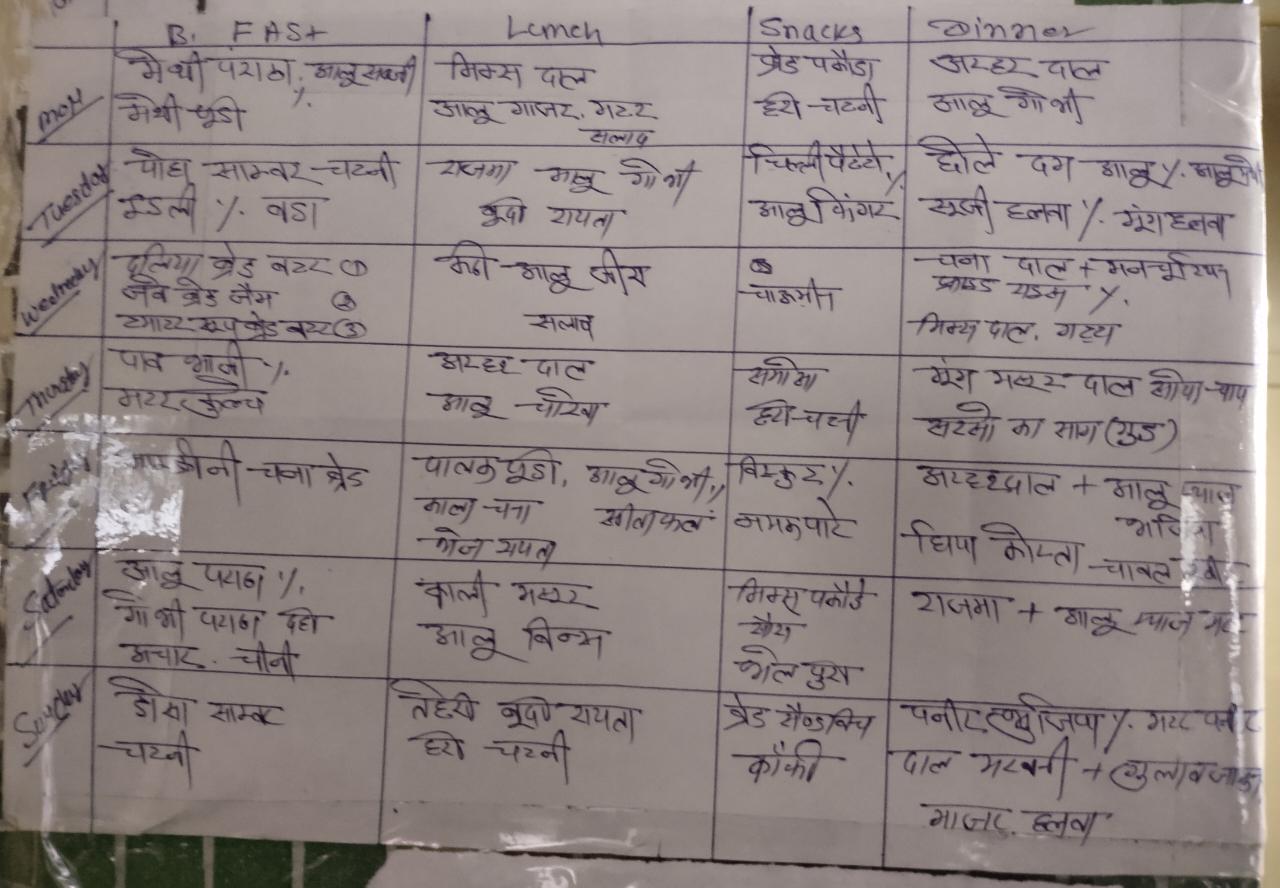 B. FASt Lunch Snacks Dinner
MON
मेथी पराठा, आलू सब्जी
मेथी पूडी
मिक्स दाल
आलू गाजर, मटर
सलाद
ब्रेड पकौडा
हरी चटनी
अरहर दाल
आलू गोभी
Tuesday
पोहा साम्बर चटनी
इडली %. वडा
राजमा आलू गोभी
बूंदी रायता
चिल्ली पटेटो,%
आलू फिंगर
छोले दम आलू %. आलू मेथी
सूजी हलवा %. मूंग हलवा
Wednesday
दलिया ब्रेड बटर ①
ब्रेड जैम ②
टमाटर सूप ब्रेड बटर ③
कढी आलू जीरा
सलाद
चाऊमीन
चना दाल + मनचूरियन
फ्राइड राइस %.
मिक्स दाल.
Thursday
पाव भाजी %.
मटर कुल्चा
अरहर दाल
आलू
समोसा
हरी चटनी
मूंग मसूर दाल सोया चाप
सरसो का साग (गुड)
चना ब्रेड
पालक पूडी, आलू गोभी,
काला चना सीताफल
रायता
बिस्कुट %.
नमकपारे
अरहर दाल + आलू प्याज
कोफ्ता चावल
Saturday
आलू पराठा %.
गोभी पराठा दही
अचार. चीनी
काली मसूर
आलू बिन्स
मिक्स पकौडे
भेल पुरी
राजमा + आलू प्याज
Sunday
डोसा साम्बर
चटनी
तेहरी बूंदी रायता
हरी चटनी
ब्रेड सैण्डविच
कॉफी
पनीर %. मटर पनीर
दाल मखनी + गुलाब जामुन
गाजर हलवा